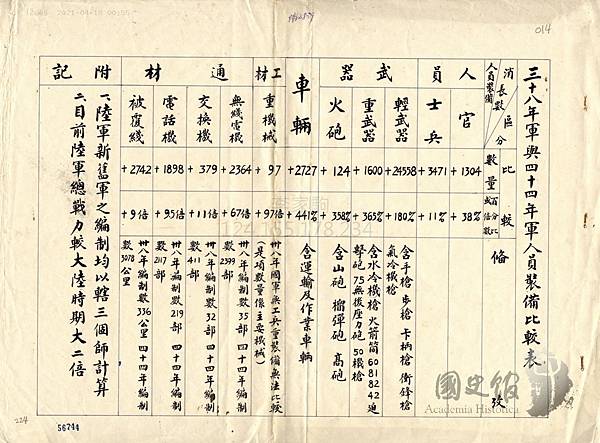 014
三十八年軍與四十四年軍人員裝備比較表
區分
消長數
人員裝備
比較
數量
百分比或倍數
備攷
人員
官
+1304
+38%
士兵
+3471
+11%
武器
輕武器
+24558
+180%
含手槍 步槍 卡柄槍 衝鋒槍
氣冷機槍
重武器
+1600
+365%
含水冷機槍 火箭筒 60 81 82 42迫
擊砲 75無後座力砲 50機槍
火砲
+124
+358%
含山砲 榴彈砲 高砲
車輛
+2727
+441%
含運輸及作業車輛
工材
重機械
+97
+97倍
卅八年國軍無工兵重裝備無法比較
(是項數量係主要機械)
通材
無綫電機
+2364
+67倍
卅八年編制數35部 四十四年編制
數2399部
交換機
+379
+11倍
卅八年編制數32部 四十四年編制
數411部
電話機
+1898
+9.5倍
卅八年編制數219部 四十四年編制
數2117部
被覆綫
+2742
+9倍
卅八年編制數336公里 四十四年編制
數3078公里
附記
一、陸軍新舊軍之編制均以轄三個師計算
二、目前陸軍總戰力較大陸時期大二倍
224
56744
國史館
Academia Historica